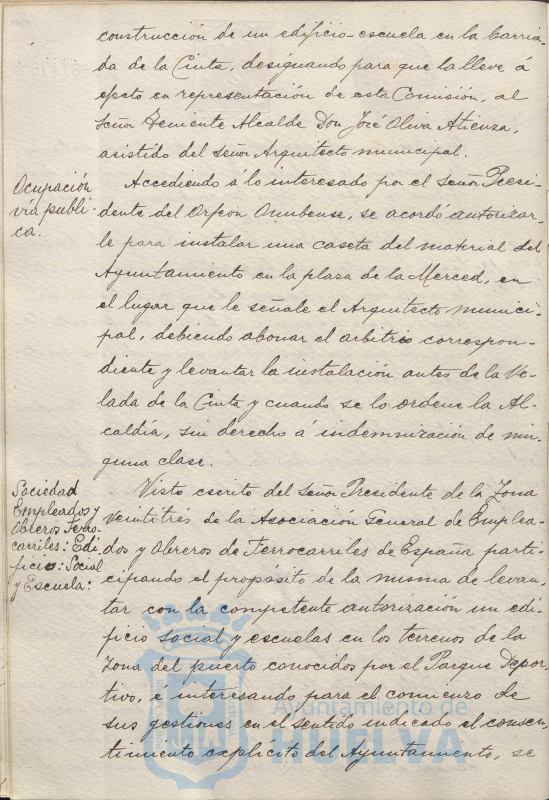 construcción de un edificio-escuela en la barria-
da de la Cinta, designando para que la lleve á
efecto en representación de esta Comisión, al
Señor Teniente Alcalde Don José Oliva Atienza,
asistido del señor Arquitecto municipal.
Ocupación
vía públi-
ca.
Accediendo á lo interesado por el Señor Presi-
dente del Orfeón Onubense, se acordó autorizar-
le para instalar una caseta del material del
Ayuntamiento en la plaza de la Merced, en
el lugar que le señale el Arquitecto munici-
pal, debiendo abonar el arbitrio correspon-
diente y levantar la instalación antes de la Ve-
lada de la Cinta y cuando se lo ordene la Al-
caldía, sin derecho á indemnización de nin-
guna clase.
Sociedad
Empleados y
Obreros Ferro-
carriles: Edi-
ficio: Social
y Escuela:
Visto escrito del Señor Presidente de la Zona
Veintitrés de la Asociación General de Emplea-
dos y Obreros de Ferrocarriles de España parti-
cipando el propósito de la misma de levan-
tar con la competente autorización un edi-
ficio social y escuelas en los terrenos de la
Zona del puerto conocidos por el Parque Depor-
tivo, é interesando para el comienzo de
sus gestiones en el sentido indicado el consen-
timiento explícito del Ayuntamiento, se
Ayuntamiento de
HUELVA